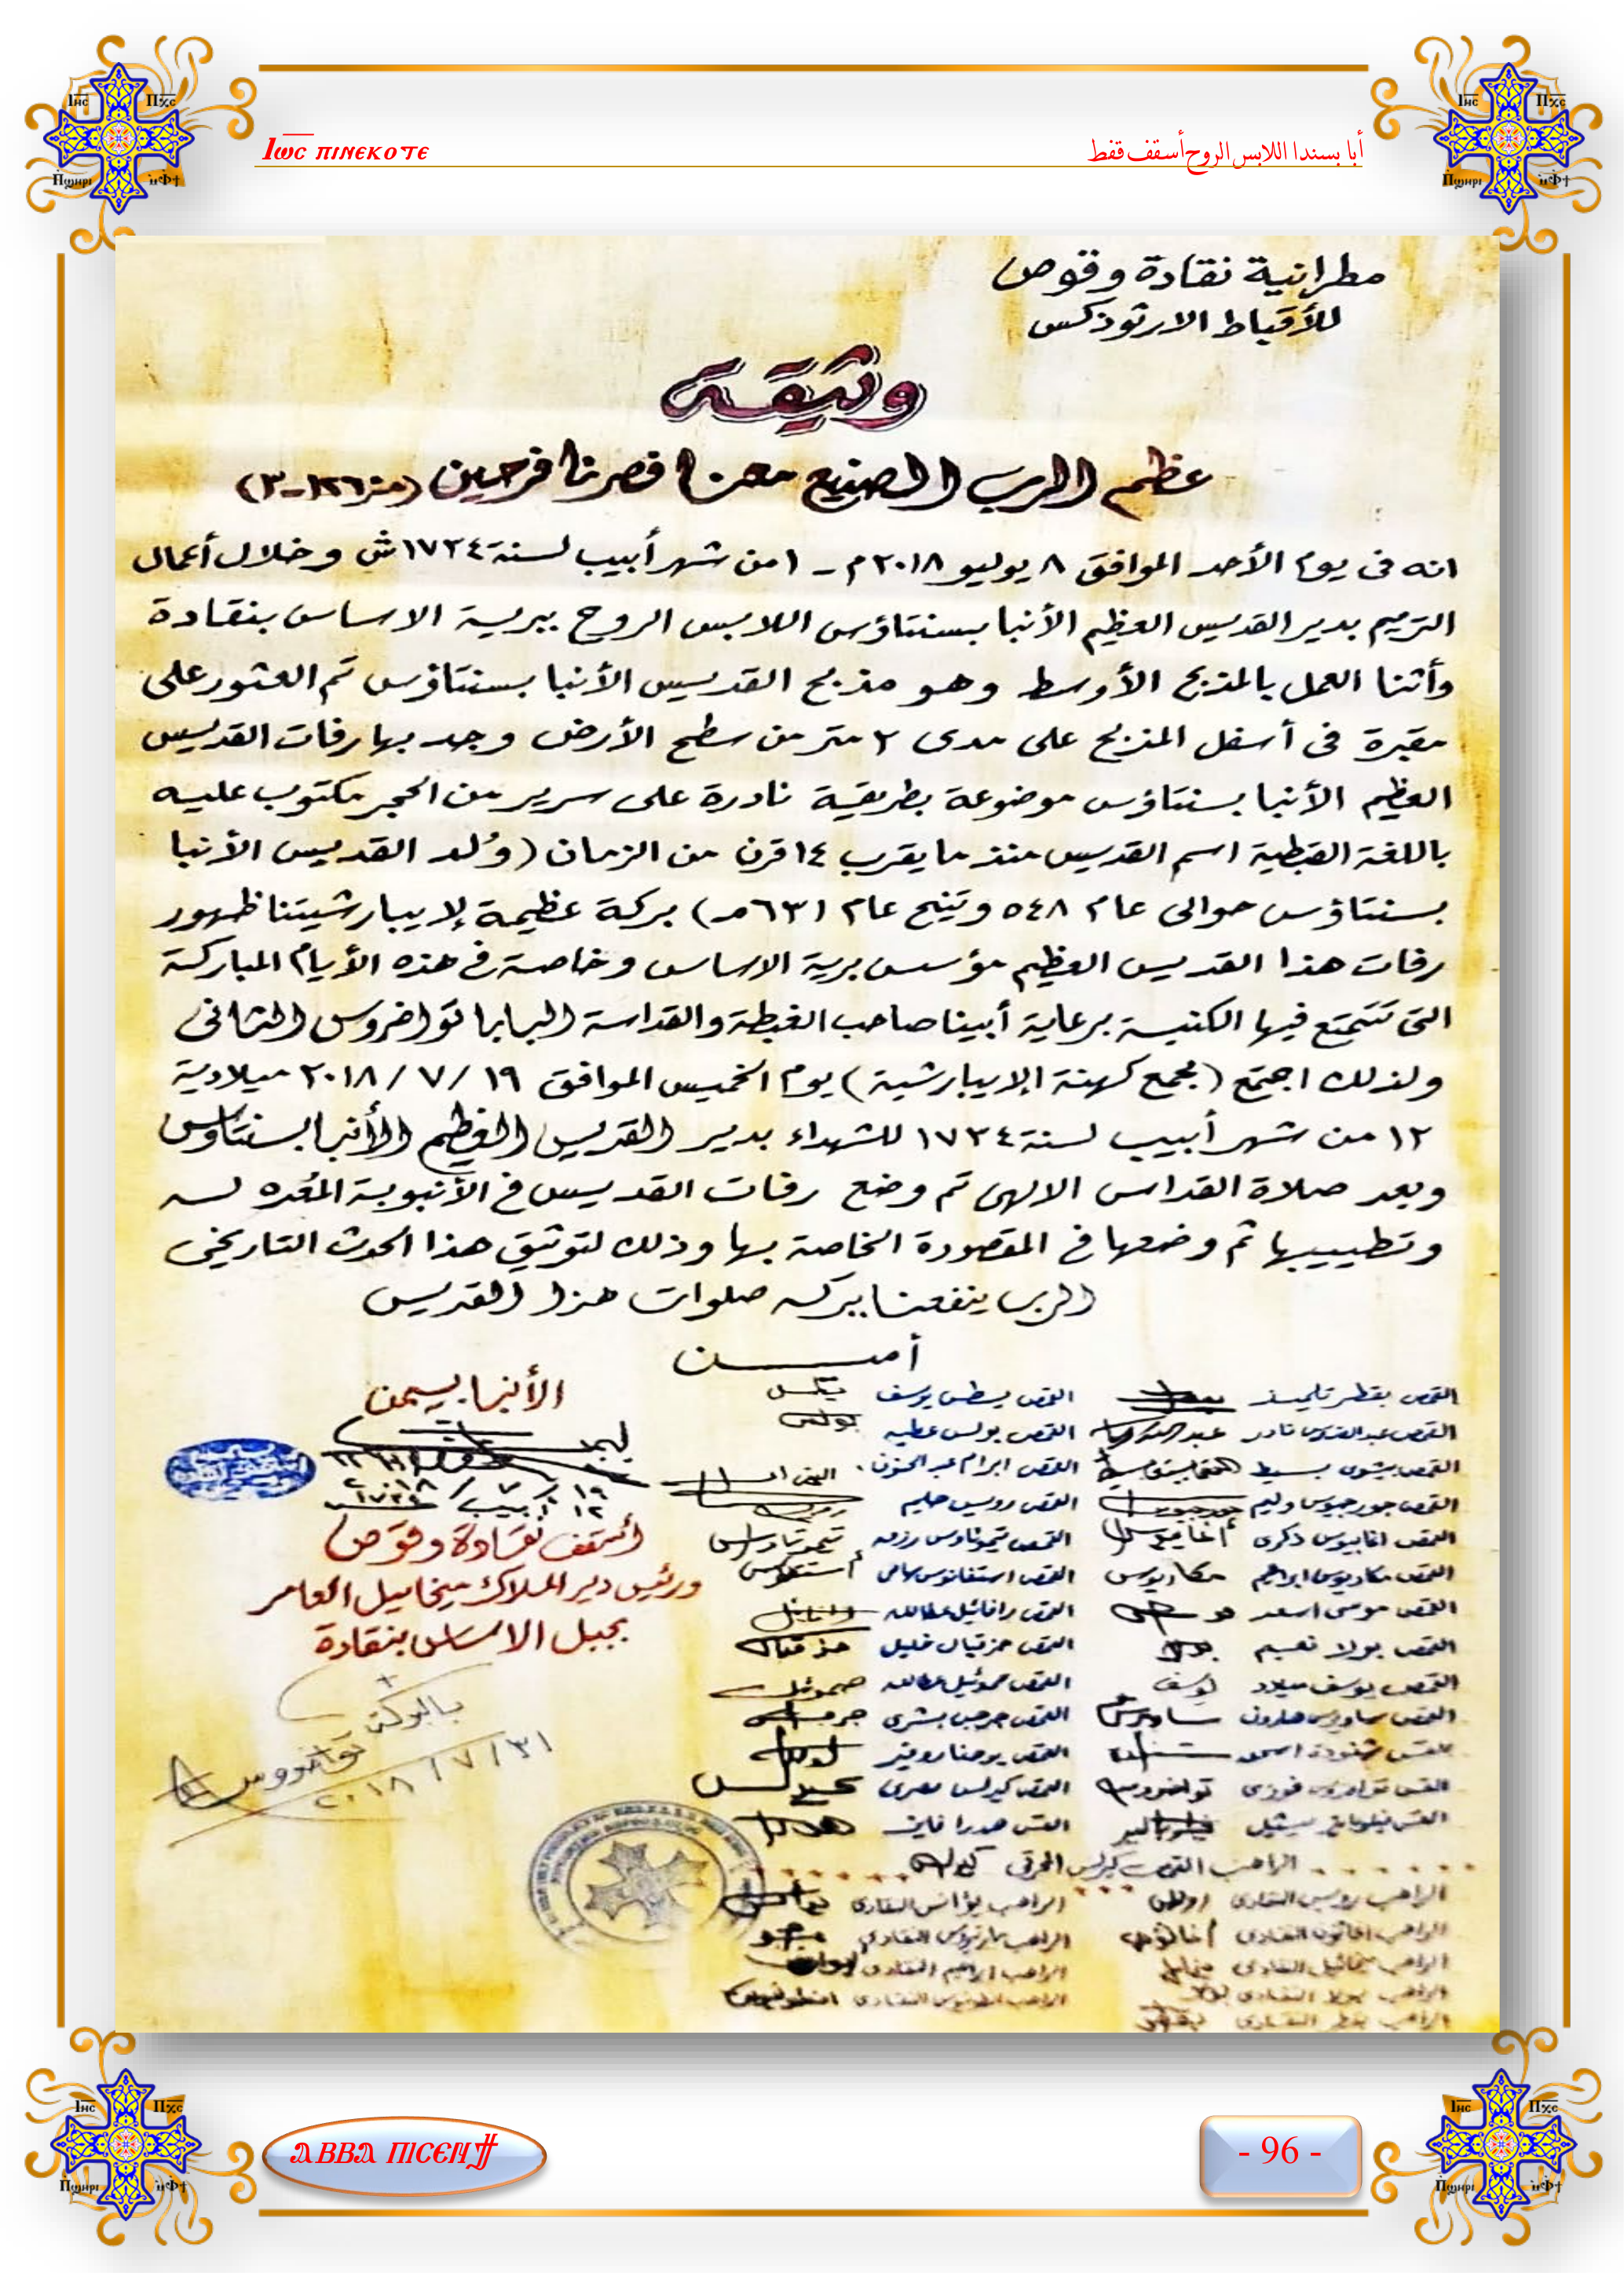 Ⲓⲱⲥ ⲡⲓⲛⲉⲕⲟⲧⲉ
أبا بسندا اللابس الروح أسقف قفط
مطرانية نقادة وقوص
للأقباط الارثوذكس
وثيقة
عظم الرب الصنيع معنا فصرنا فرحين (مز١٢٦-٣)
انه فى يوم الأحد الموافق ٨ يوليو ٢٠١٨م - ١ من شهر أبيب لسنة ١٧٣٤ش وخلال أعمال
الترميم بدير القديس العظيم الأنبا بسنتاؤس اللابس الروح ببرية الاساس بنقادة
وأثنا العمل بالمذبح الأوسط وهو مذبح القديس الأنبا بسنتاؤس تم العثور على
مقبرة فى أسفل المذبح على مدى ٢ متر من سطح الأرض وجد بها رفات القديس
العظيم الأنبا بسنتاؤس موضوعة بطريقة نادرة على سرير من الحجر مكتوب عليه
باللغة القبطية اسم القديس منذ ما يقرب ١٤ قرن من الزمان (وُلد القديس الأنبا
بسنتاؤس حوالى عام ٥٤٨ وتنيح عام ٦٣١م) بركة عظيمة لإيبارشيتنا ظهور
رفات هذا القديس العظيم مؤسس برية الاساس وخاصة فى هذه الأيام المباركة
التى تتمتع فيها الكنيسة برعاية أبينا صاحب الغبطة والقداسة البابا تواضروس الثانى
ولذلك اجتمع (مجمع كهنة الإيبارشية) يوم الخميس الموافق ١٩/٧/٢٠١٨ ميلادية
١٢ من شهر أبيب لسنة ١٧٣٤ للشهداء بدير القديس العظيم الأنبا بسنتاؤس
وبعد صلاة القداس الالهى تم وضع رفات القديس فى الأنبوبة المُعده له
وتطييبها ثم وضعها فى المقصورة الخاصة بها وذلك لتوثيق هذا الحدث التاريخى
الرب ينفعنا ببركه صلوات هذا القديس
أمين
الأنبا بيمن
١٩/٧/٢٠١٨
١٢ أبيب ١٧٣٤
أسقف نقادة وقوص
ورئيس دير الملاك ميخائيل العامر
بجبل الاساس بنقادة
بالبركة
تواضروس
٣١/٧/٢٠١٨
القمص بقطر تلميذ القمص بسطس يوسف
القمص عبد القدوس نادر القمص بولس عطيه
القمص بيشوى بسيط القمص ابرام عبد الحنون
القمص جورجيوس وليم القمص رويس حليم
القمص اغابيوس ذكرى القمص تيموثاوس رزمه
القمص مكاريوس ابراهيم مكاريوس القمص استفانوس سامى
القمص موسى اسعد القمص رافائيل عطالله
القمص بولا نعيم القمص حزقيال خليل
القمص يوسف ميلاد يوسف القمص صموئيل عطالله
القمص ساويرس هارون القمص جرجس بشرى
القس شنودة اسعد القمص يوحنا روفيز
القس تواضروس فوزى تواضروس القمص كيرلس مصرى
القس ميشيل القس هدرا فايز
الراهب القمص كيرلس المحرقى
الراهب رويس النقادى الراهب يؤانس النقادى
الراهب النقادى الراهب النقادى
الراهب ميخائيل النقادى الراهب ابراهيم النقادى
الراهب بولا النقادى الراهب انطونيوس النقادى
الراهب بقطر النقادى
ⲀⲂⲂⲀ ⲠⲒⲤⲈⲚϮ
- 96 -